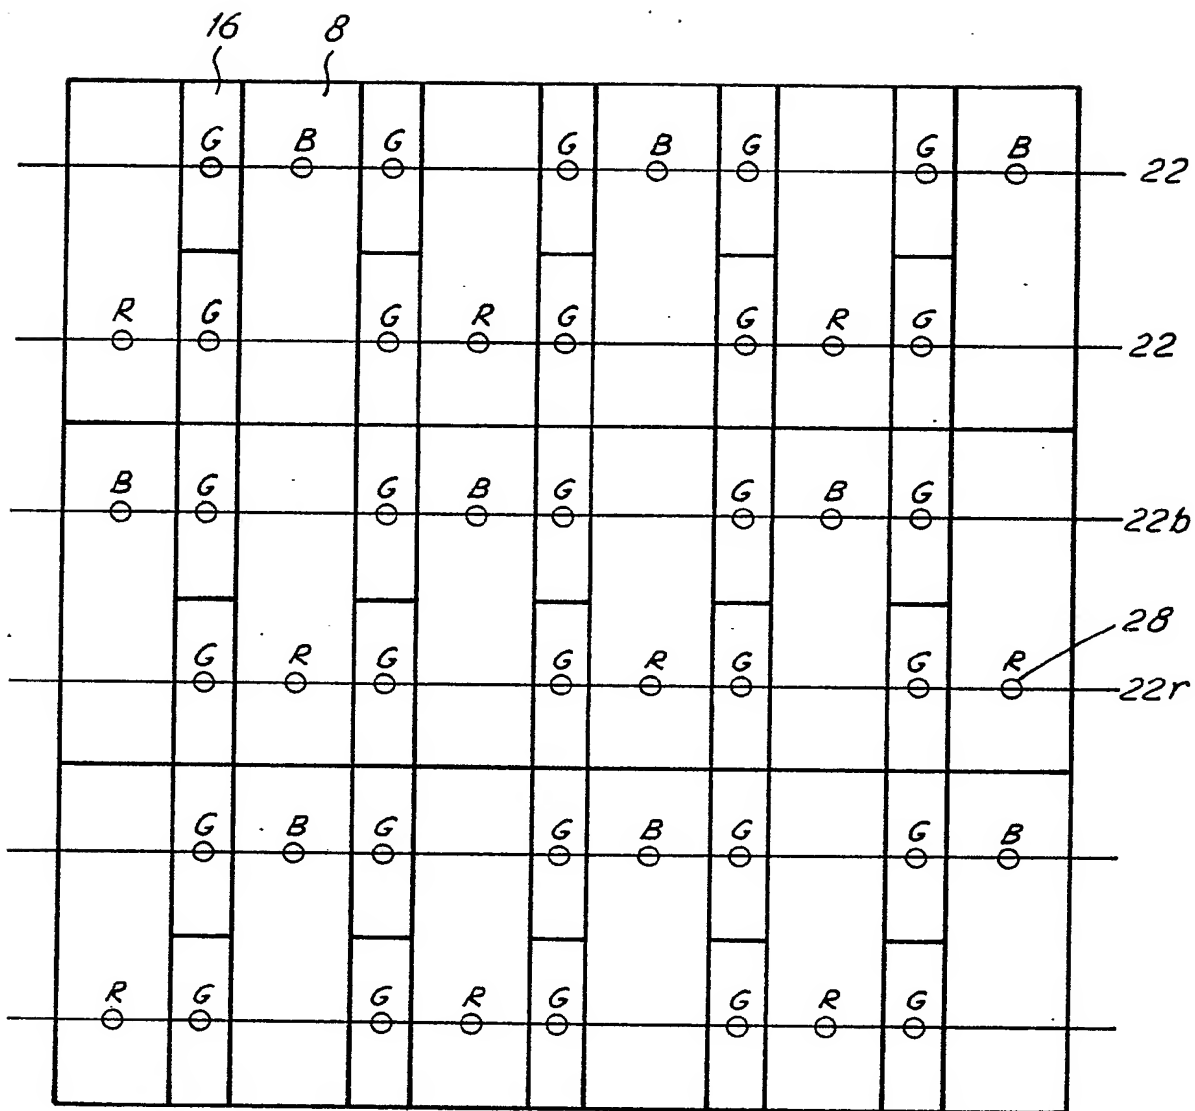 16 8
G B G G B G G B
22
R G G R G G R G
22
B G G B G G B G
22b
28
G R G G R G G R
22r
G B G G B G G B
R G G R G G R G